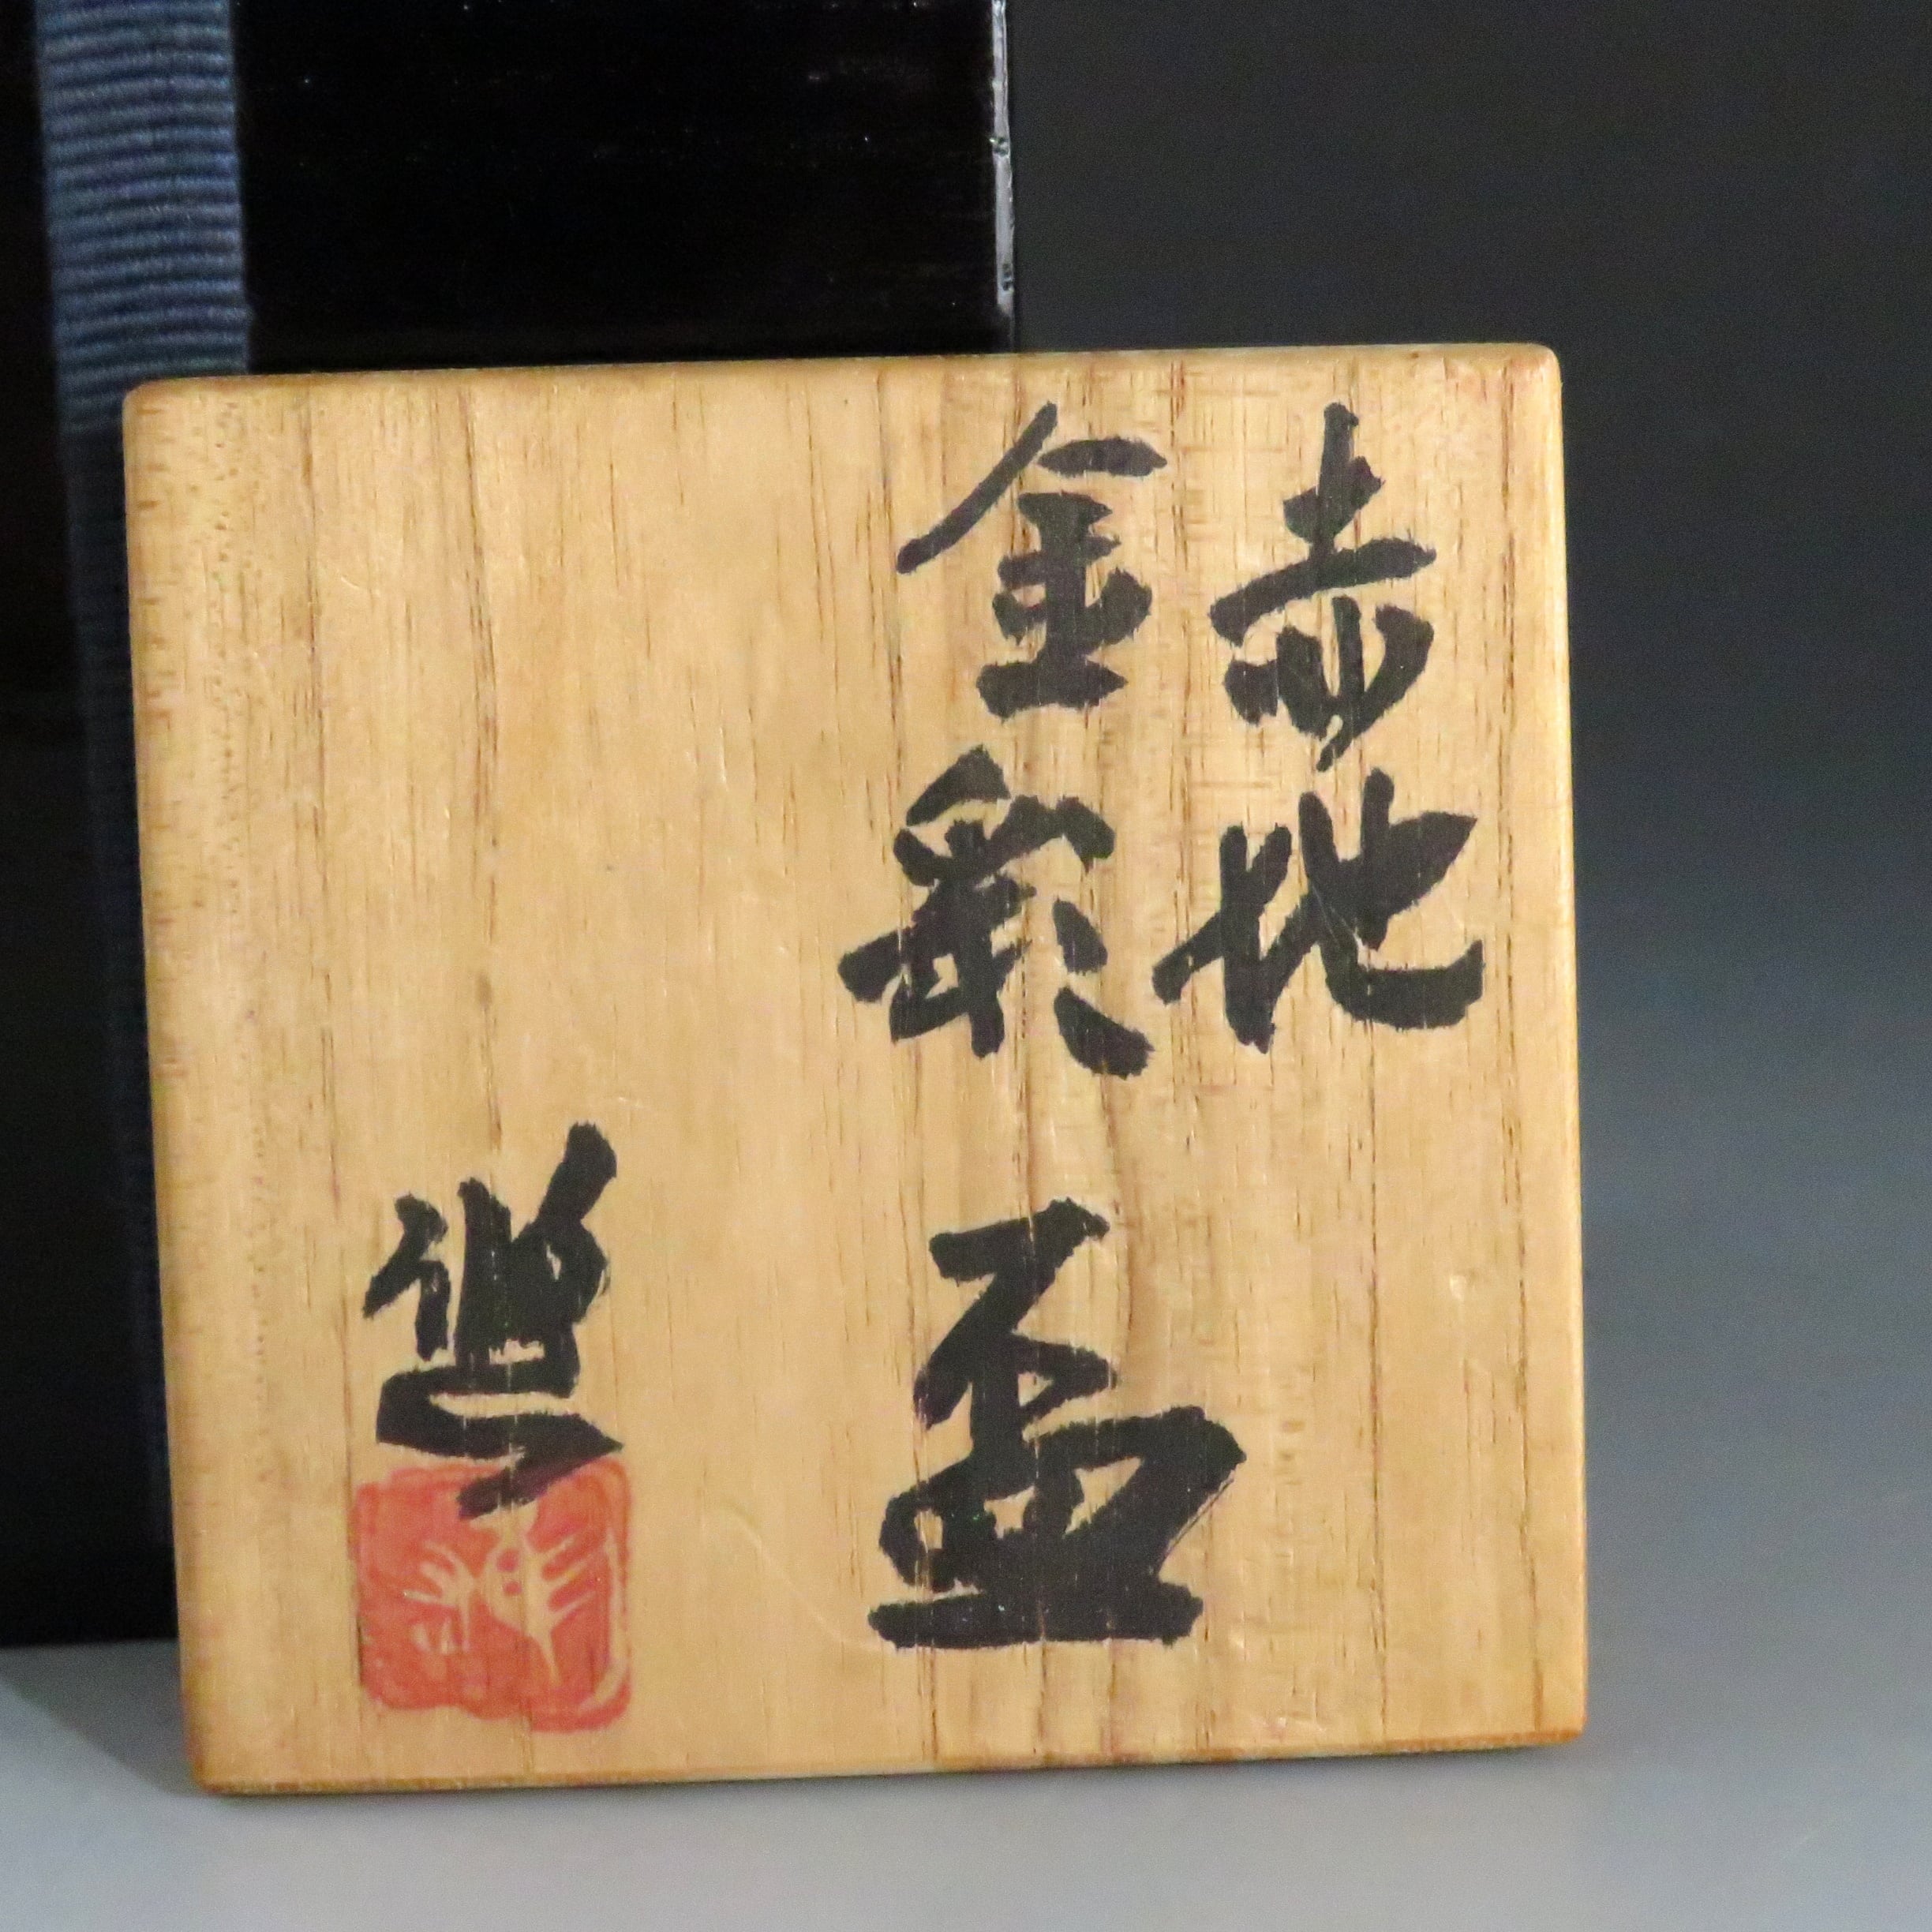 赤地
金彩
盃